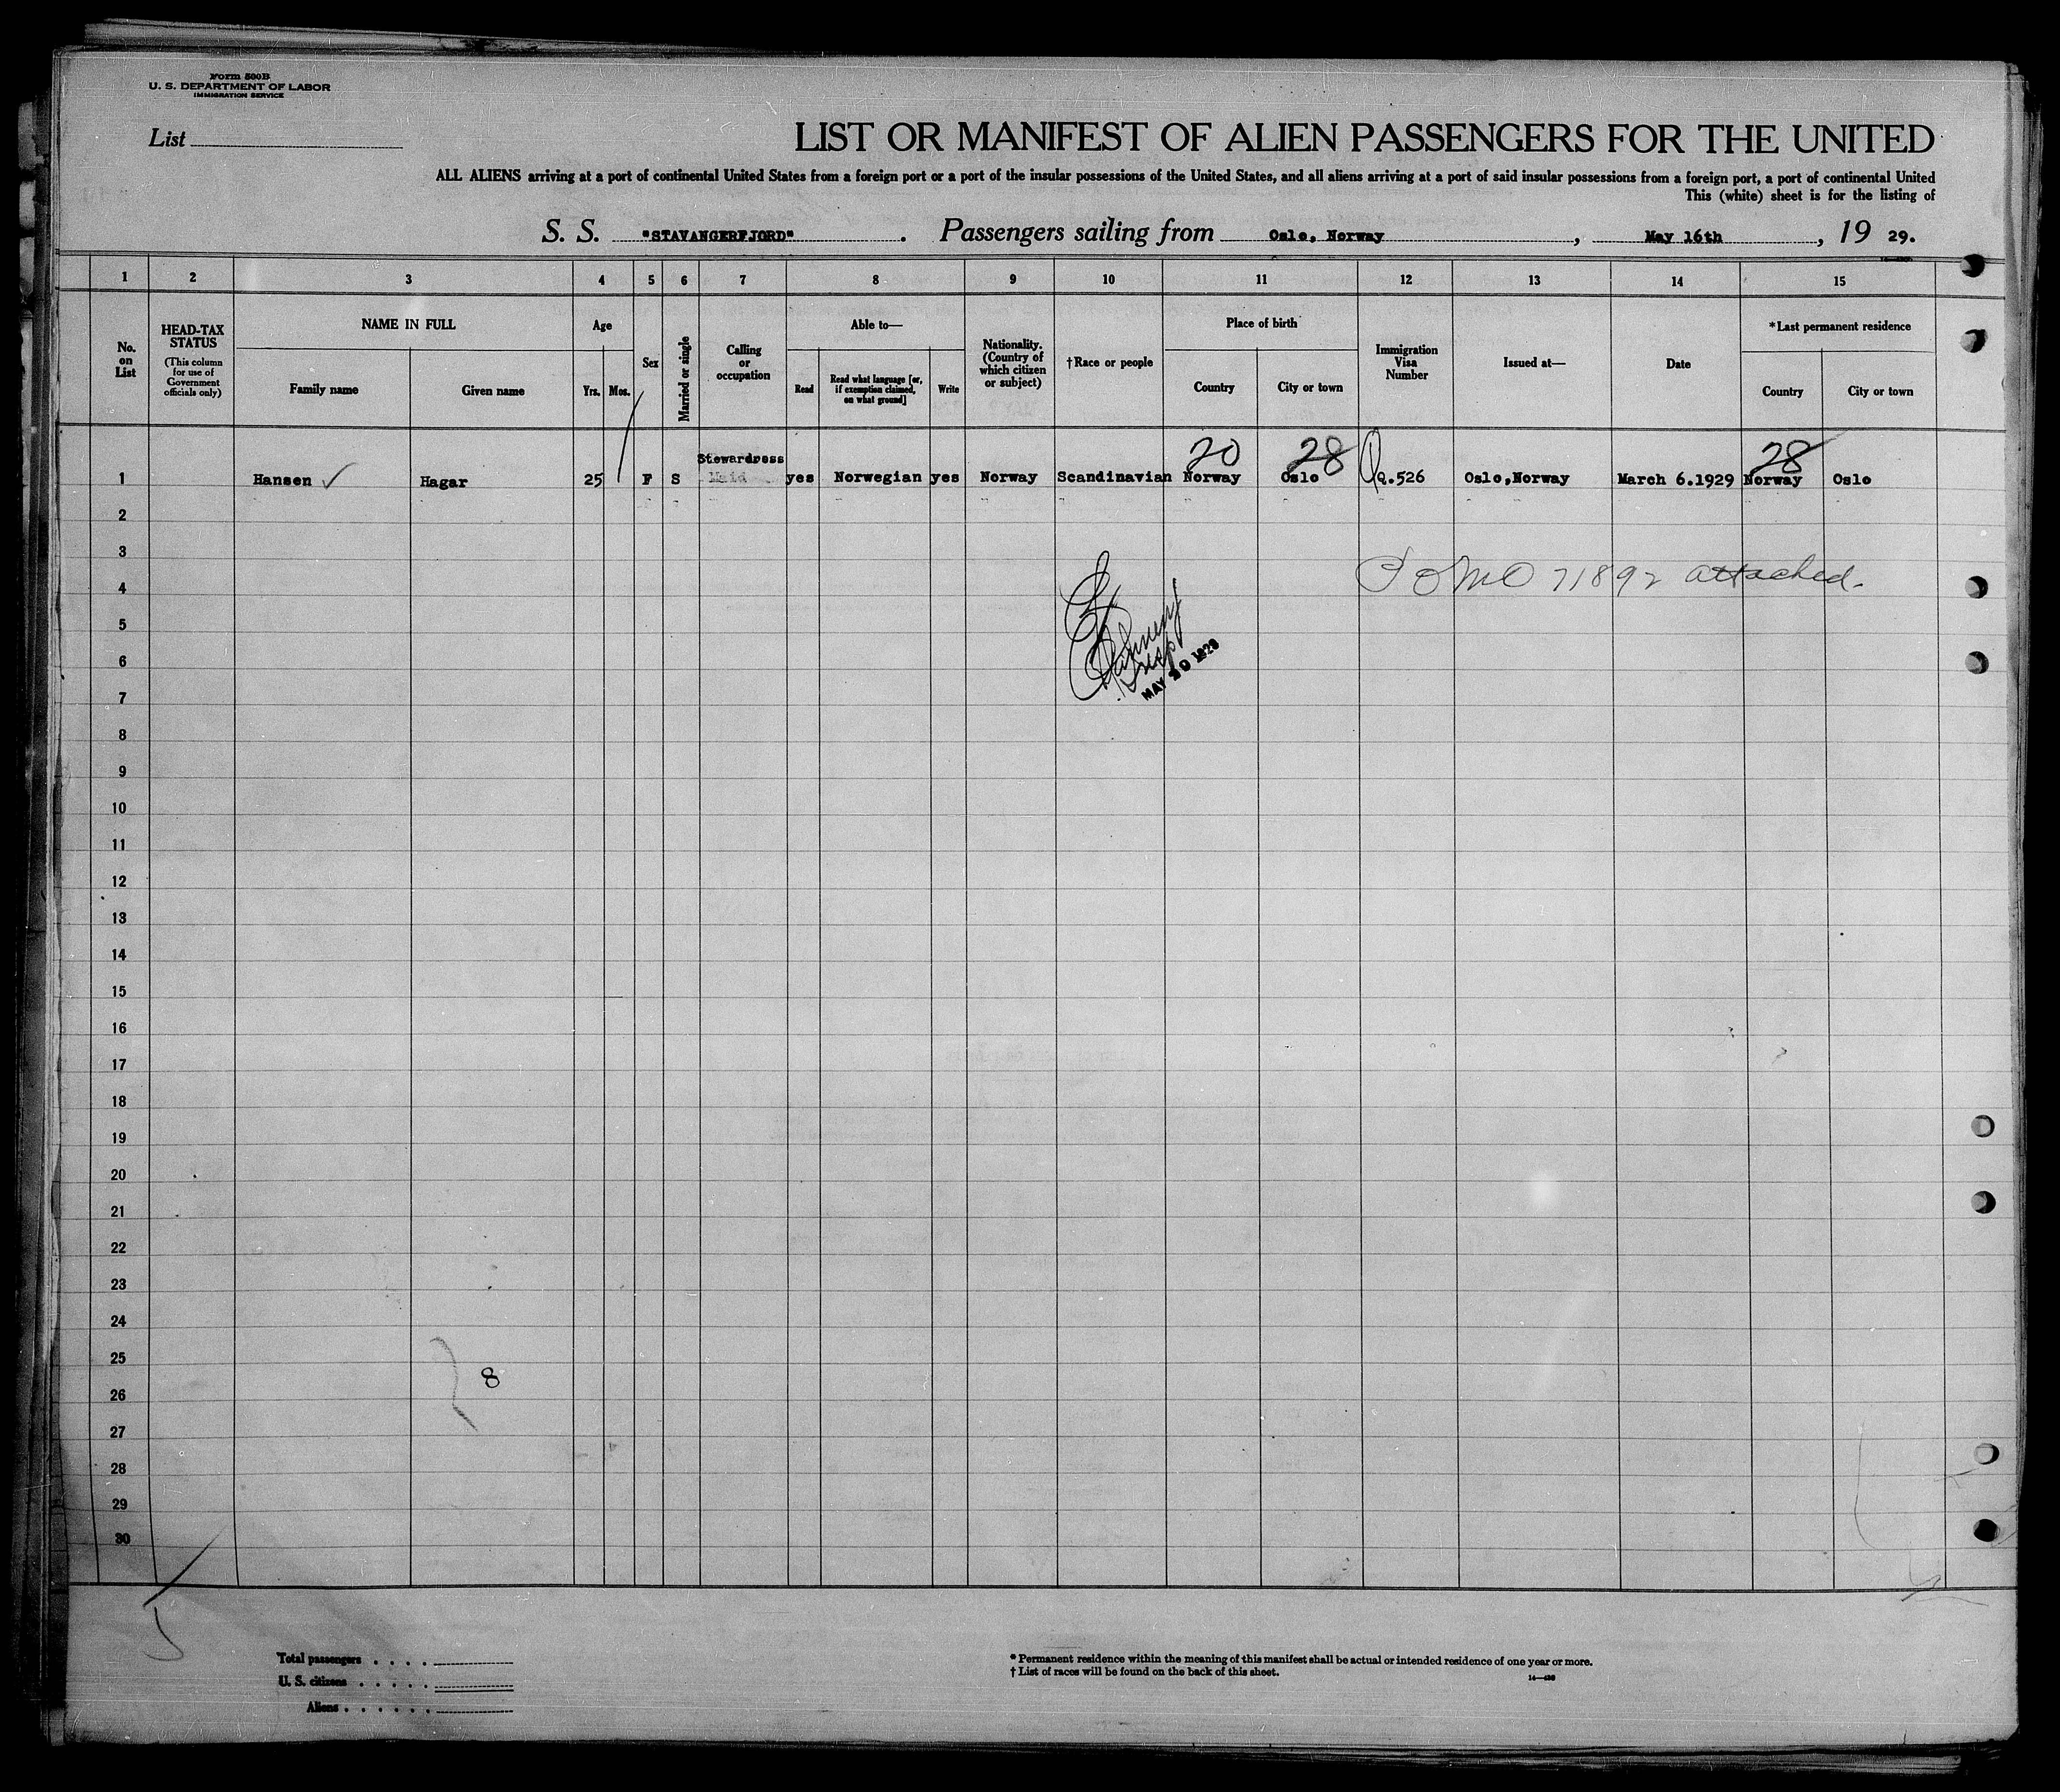 Form 500B
U. S. DEPARTMENT OF LABOR
IMMIGRATION SERVICE
List
LIST OR MANIFEST OF ALIEN PASSENGERS FOR THE UNITED
ALL ALIENS arriving at a port of continental United States from a foreign port or a port of the insular possessions of the United States, and all aliens arriving at a port of said insular possessions from a foreign port, a port of continental United
This (white) sheet is for the listing of
S. S. "STAVANGERFJORD". Passengers sailing from Oslo, Norway, May 16th, 19 29.
1 2 3 4 5 6 7 8 9 10 11 12 13 14 15
No. on List
HEAD-TAX STATUS
(This column for use of Government officials only)
NAME IN FULL
Family name
Given name
Age
Yrs. Mos.
Sex
Married or single
Calling or occupation
Able to—
Read
Read what language [or, if exemption claimed, on what ground]
Write
Nationality. (Country of which citizen or subject)
†Race or people
Place of birth
Country
City or town
Immigration Visa Number
Issued at—
Date
*Last permanent residence
Country
City or town
20 28 28
Stewardess
1 Hansen ✓ Hagar 25 F S Maid yes Norwegian yes Norway Scandinavian Norway Oslo Q.526 Oslo,Norway March 6.1929 Norway Oslo
2
3
71892 attached.
4
5
6
MAY 1929
7
8
9
10
11
12
13
14
15
16
17
18
19
20
21
22
23
24
25
8
26
27
28
29
30
Total passengers . . . .
U. S. citizens . . . . .
Aliens . . . . . .
* Permanent residence within the meaning of this manifest shall be actual or intended residence of one year or more.
† List of races will be found on the back of this sheet.